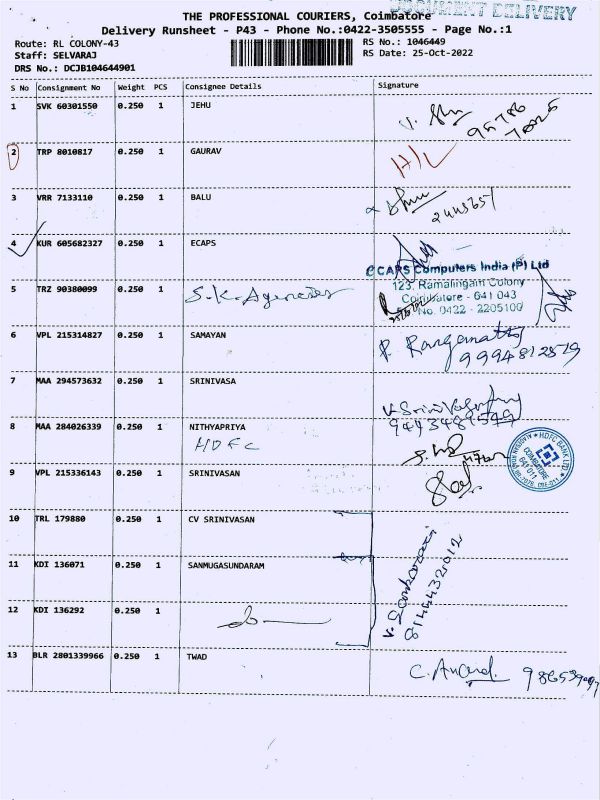 DOCUMENT DELIVERY
THE PROFESSIONAL COURIERS, Coimbatore
Delivery Runsheet - P43 - Phone No.:0422-3505555 - Page No.:1
Route: RL COLONY-43 RS No.: 1046449
Staff: SELVARAJ RS Date: 25-Oct-2022
DRS No.: DCJB104644901
S No Consignment No Weight PCS Consignee Details Signature
1 SVK 60301550 0.250 1 JEHU
2 TRP 8010817 0.250 1 GAURAV H/L
3 VRR 7133110 0.250 1 BALU
4 KUR 605682327 0.250 1 ECAPS
eCAPS Computers India (P) Ltd
123, Ramalingam Colony
5 TRZ 90380099 0.250 1 S.K. Agencies Coimbatore - 641 043
No. 0422 - 2205100
6 VPL 215314827 0.250 1 SAMAYAN P. Ranganath
9994812579
7 MAA 294573632 0.250 1 SRINIVASA
9443489549
8 MAA 284026339 0.250 1 NITHYAPRIYA
HDFC
HDFC BANK LTD.
COIMBATORE
641 011
9 VPL 215336143 0.250 1 SRINIVASAN
10 TRL 179880 0.250 1 CV SRINIVASAN
11 KDI 136071 0.250 1 SANMUGASUNDARAM
12 KDI 136292 0.250 1
13 BLR 2801339966 0.250 1 TWAD C. Anand.